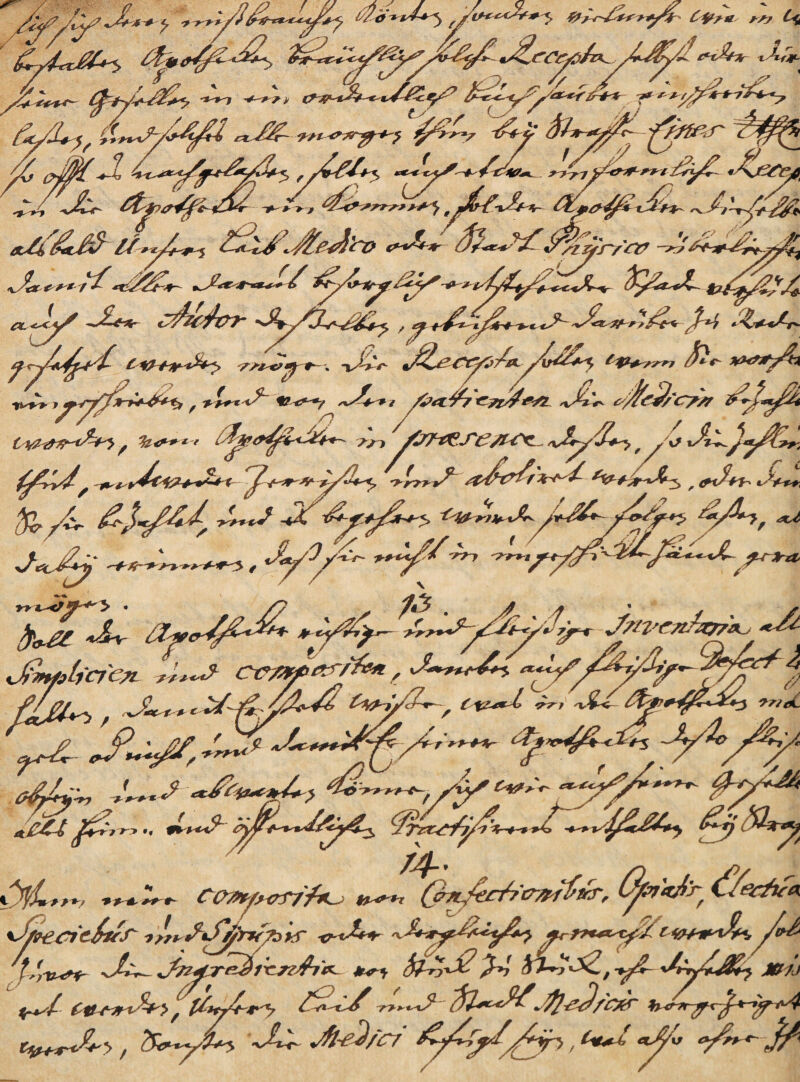 lich sich deren mißbrauchen Könten, sondern vielmehr wie in
bestalten Apothecken bräuchlich solche Recepta selbst oder dur
seine Gesellen in ein ordentlich buch sauber einschreiben
laßen, und solches alle morgen thun bey Straffe Eines Thlr
so offt es nachgelaßen, solten auch etwa unformliche Recep
in die Apothecke ein Kommen, sol der Apothecker dieselbe
alsbald Unsern Leib Medico oder Stadt Physico überlieffer
damit aller daraus besorglich entstehender Schade verhüte
auch der Autor deßelben, gebührend darüber zu Rede
gesetzet werden möge. die Recepta sollen wenn Sie vorher
eingeschrieben, und von den patienten die Medicin bezahle
worden, vom Apothecker in præsence deßen, so die zahlun
thut, entweder zerrißen und aboliret werden, oder dem
So sie bezahlet, und es begehren würde selbe folgen laßen, ab
dabey erinnern, daß sie nicht in ungeschickte hände gera
mögen.
13
Soll der Apothecker richtige und fleißige Inventaria all
Simplicien und compositen, daneben auch fleißige Defect
halten, damit Er stets wiße, was in der Apothecken man
gele od nicht, und damit Er seiner Apothecken desto fleiß
obseyn und abwarten Könne, sich wie auch seine Geselle
alls heim= und öffentlichen Practisirens enthalten bey Straff
14.
Wenn neue composita von Confectionibus, Opiatis, Electua
Speciebus und Syrupis oder dergleichen gemacht werden soll
zuvor die Ingredientia von Stück zu Stück, ehe dieselben mis
ret werden, Unsern Leib und Stadt Medicis vorgezeiget
werden, Sonsten die Medici befugt seyn, was also ohne Ih